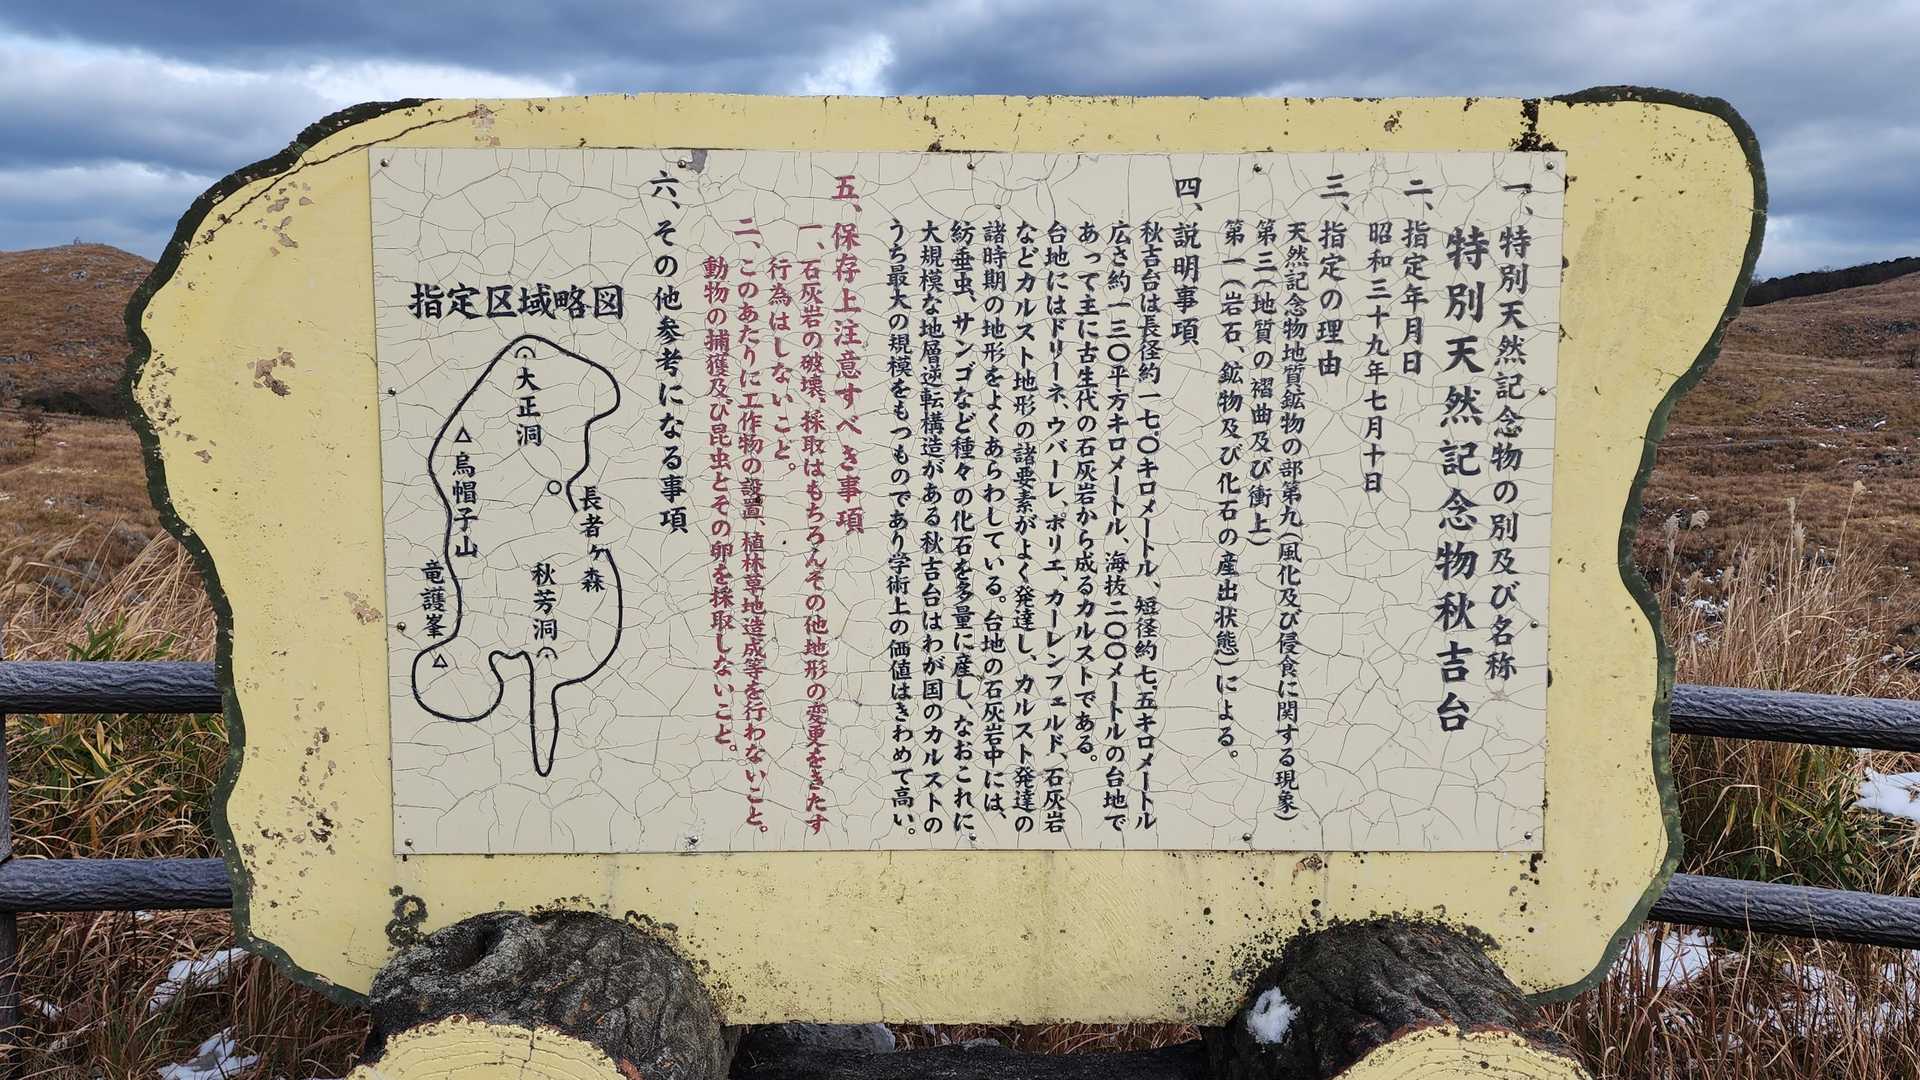 一、特別天然記念物の別及び名称
特別天然記念物秋吉台
二、指定年月日
昭和三十九年七月十日
三、指定の理由
天然記念物地質鉱物の部第九(風化及び侵食に関する現象)
第三(地質の褶曲及び衝上)
第一(岩石、鉱物及び化石の産出状態)による。
四、説明事項
秋吉台は長径約一七.〇キロメートル、短径約七.五キロメートル
広さ約一三〇平方キロメートル、海抜二〇〇メートルの台地で
あって主に古生代の石灰岩から成るカルストである。
台地にはドリーネ、ウバーレ、ポリエ、カーレンフェルド、石灰岩
などカルスト地形の諸要素がよく発達し、カルスト発達の
諸時期の地形をよくあらわしている。台地の石灰岩中には、
紡垂虫、サンゴなど種々の化石を多量に産し、なおこれに
大規模な地層逆転構造がある秋吉台はわが国のカルストの
うち最大の規模をもつものであり学術上の価値はきわめて高い。
五、保存上注意すべき事項
一、石灰岩の破壊、採取はもちろんその他地形の変更をきたす
行為はしないこと。
二、このあたりに工作物の設置、植林草地造成等を行わないこと。
動物の捕獲及び昆虫とその卵を採取しないこと。
六、その他参考になる事項
指定区域略図
大正洞
烏帽子山
長者ヶ森
秋芳洞
竜護峯